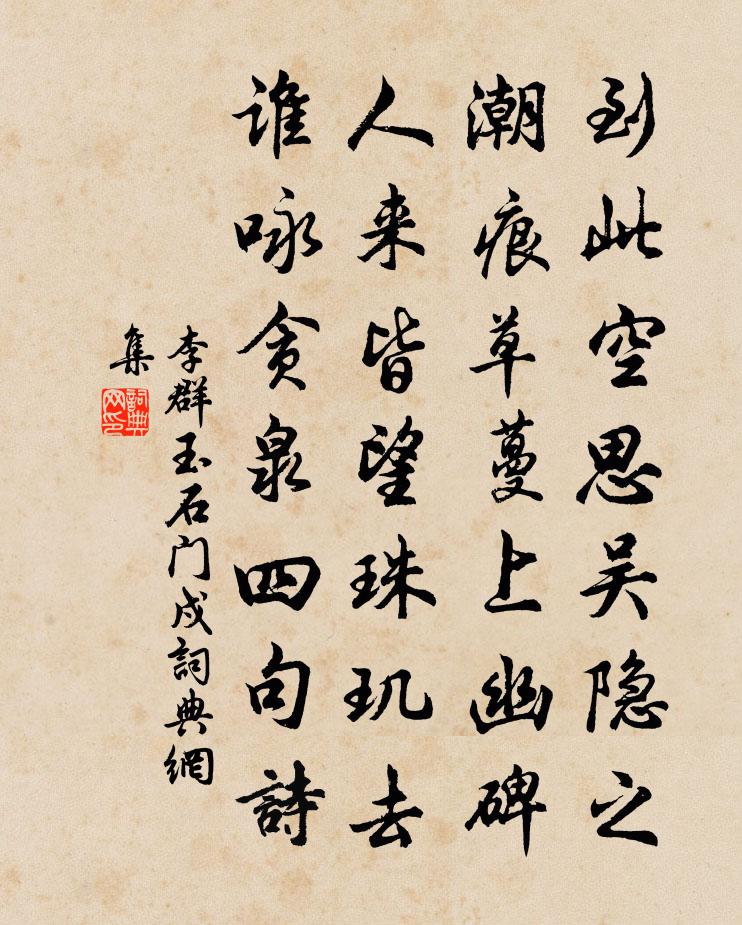 到此空思吴隐之
潮痕草蔓上幽碑
人来皆望珠玑去
谁咏贪泉四句詩
李群玉石门戍詞典網
集
詞典
网印